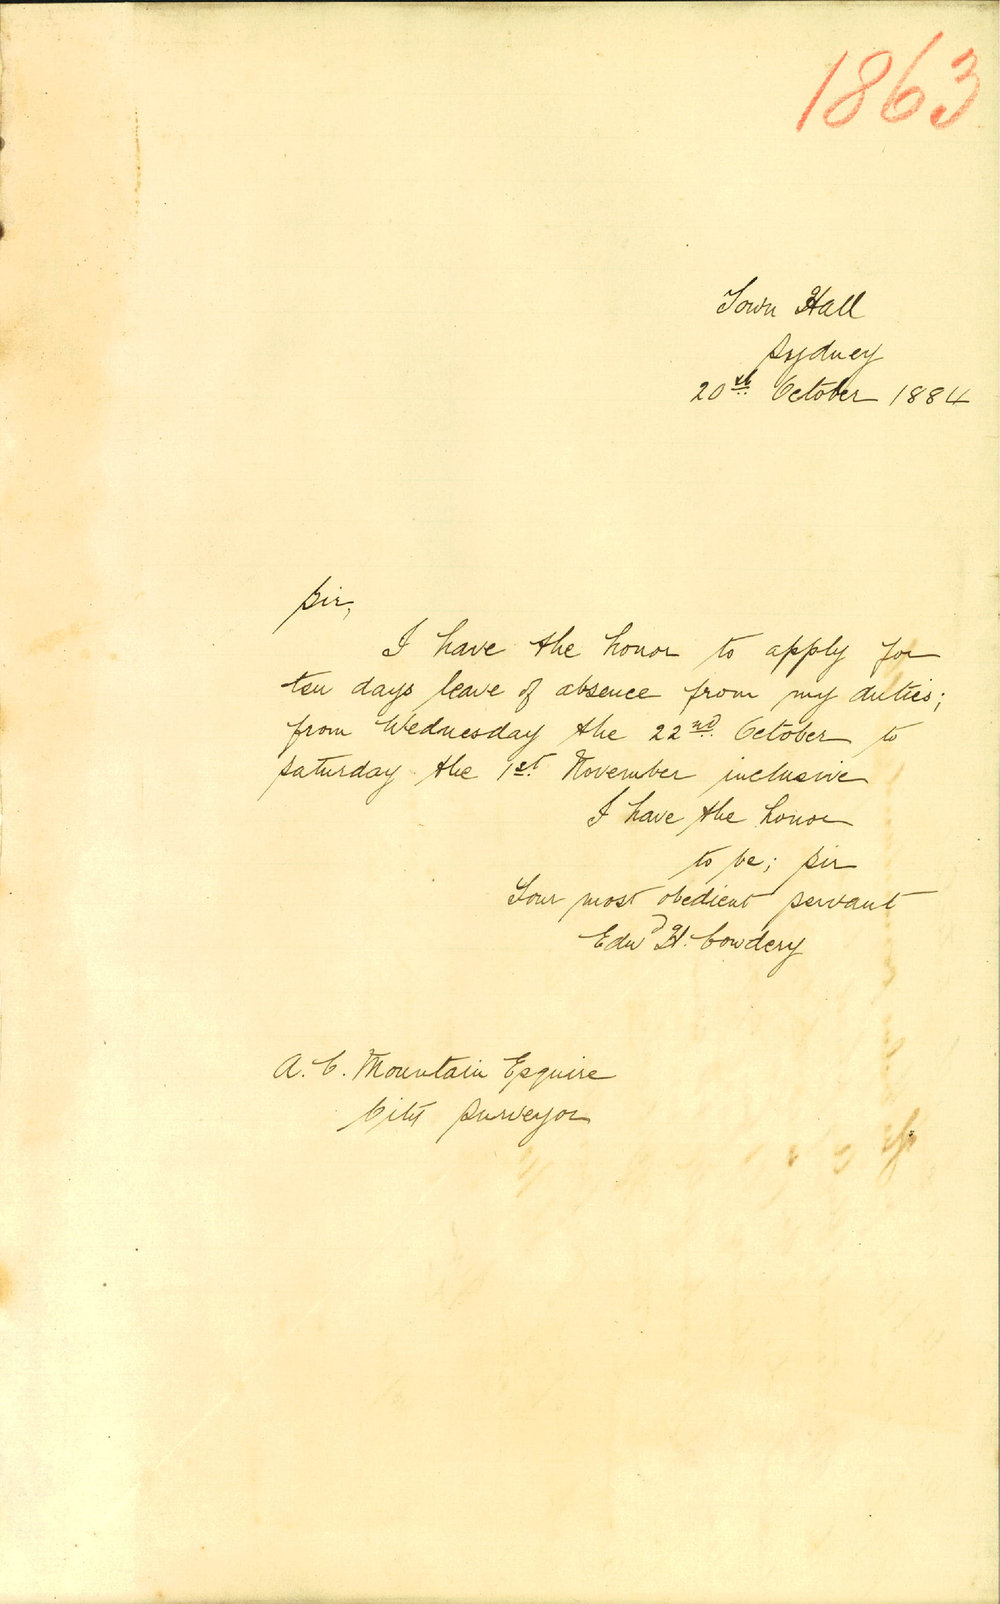 1863
Town Hall
Sydney
20th October 1884
Sir,
I have the honor to apply for
ten days leave of absence from my duties;
from Wednesday the 22nd October to
Saturday the 1st November inclusive
I have the honor
to be; Sir
Your most obedient servant
Edwd H. Cowdery
A. C. Mountain Esquire
City Surveyor